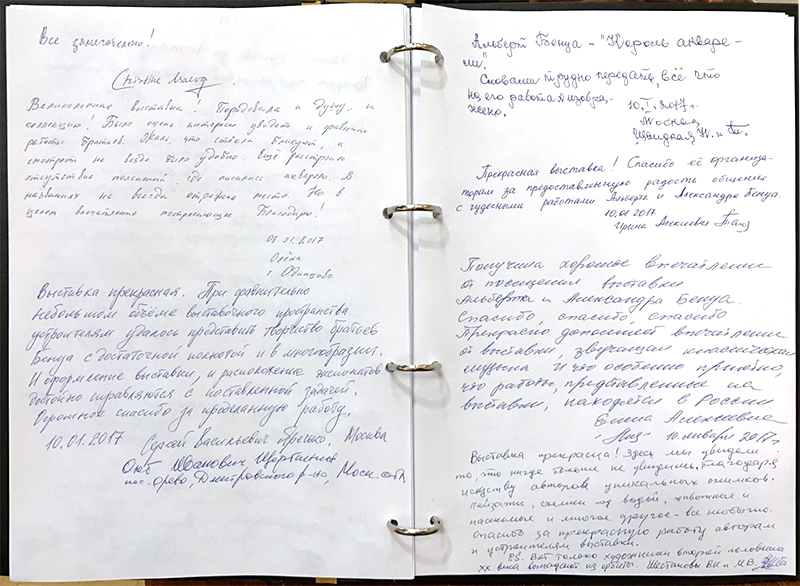 Все замечательно!
Великолепная выставка! Порадовала и душу, и
коллекцию! Было очень интересно увидеть и сравнить
работы братьев. Жаль, что стекла бликуют, и
смотреть не везде было удобно. Ещё расстроило
отсутствие пояснений, где писались акварели. В
названиях не всегда отражено место. Но в
целом впечатление потрясающее. Благодарю!
08.01.2017
Олёна
г. Одинцово
Выставка прекрасная. При сравнительно
небольшом объёме выставочного пространства
устроителям удалось представить творчество братьев
Бенуа с достаточной полнотой и в многообразии.
И оформление выставки, и расположение экспонатов
достойно справляются с поставленной задачей.
Огромное спасибо за проделанную работу.
10.01.2017 Сергей Васильевич Москва
Олег Иванович
пос. Орево, Дмитровского р-на, Моск. обл
Альберт Бенуа - "Король акваре-
ли".
Словами трудно передать, всё что
на его работах изобра-
жено.
10.I.2017г.
Москва
Прекрасная выставка! Спасибо её организа-
торам за предоставленную радость общения
с чудесными работами Альберта и Александра Бенуа.
10.01 2017.
Ирина Алексеевна
Получила хорошее впечатление
от посещения выставки
Альберта и Александра Бенуа.
Спасибо, спасибо, спасибо
Прекрасно дополняет впечатление
от выставки, звучащая классическая
музыка. И что особенно приятно,
что работы, представленные на
выставки, находятся в России
Алексеевна
10 января 2017г
Выставка прекрасна! Здесь мы увидели
то, что нигде больше не увидишь, благодаря
искусству авторов уникальных снимков.
Пейзажи, съемки под водой, животные и
насекомые и многое другое - все необычно.
Спасибо за прекрасную работу авторам
и устроителям выставки.
P.S. Вот только художники второй половины
XX века выпадают из орбиты. Шестаковы В.Н и М.В.